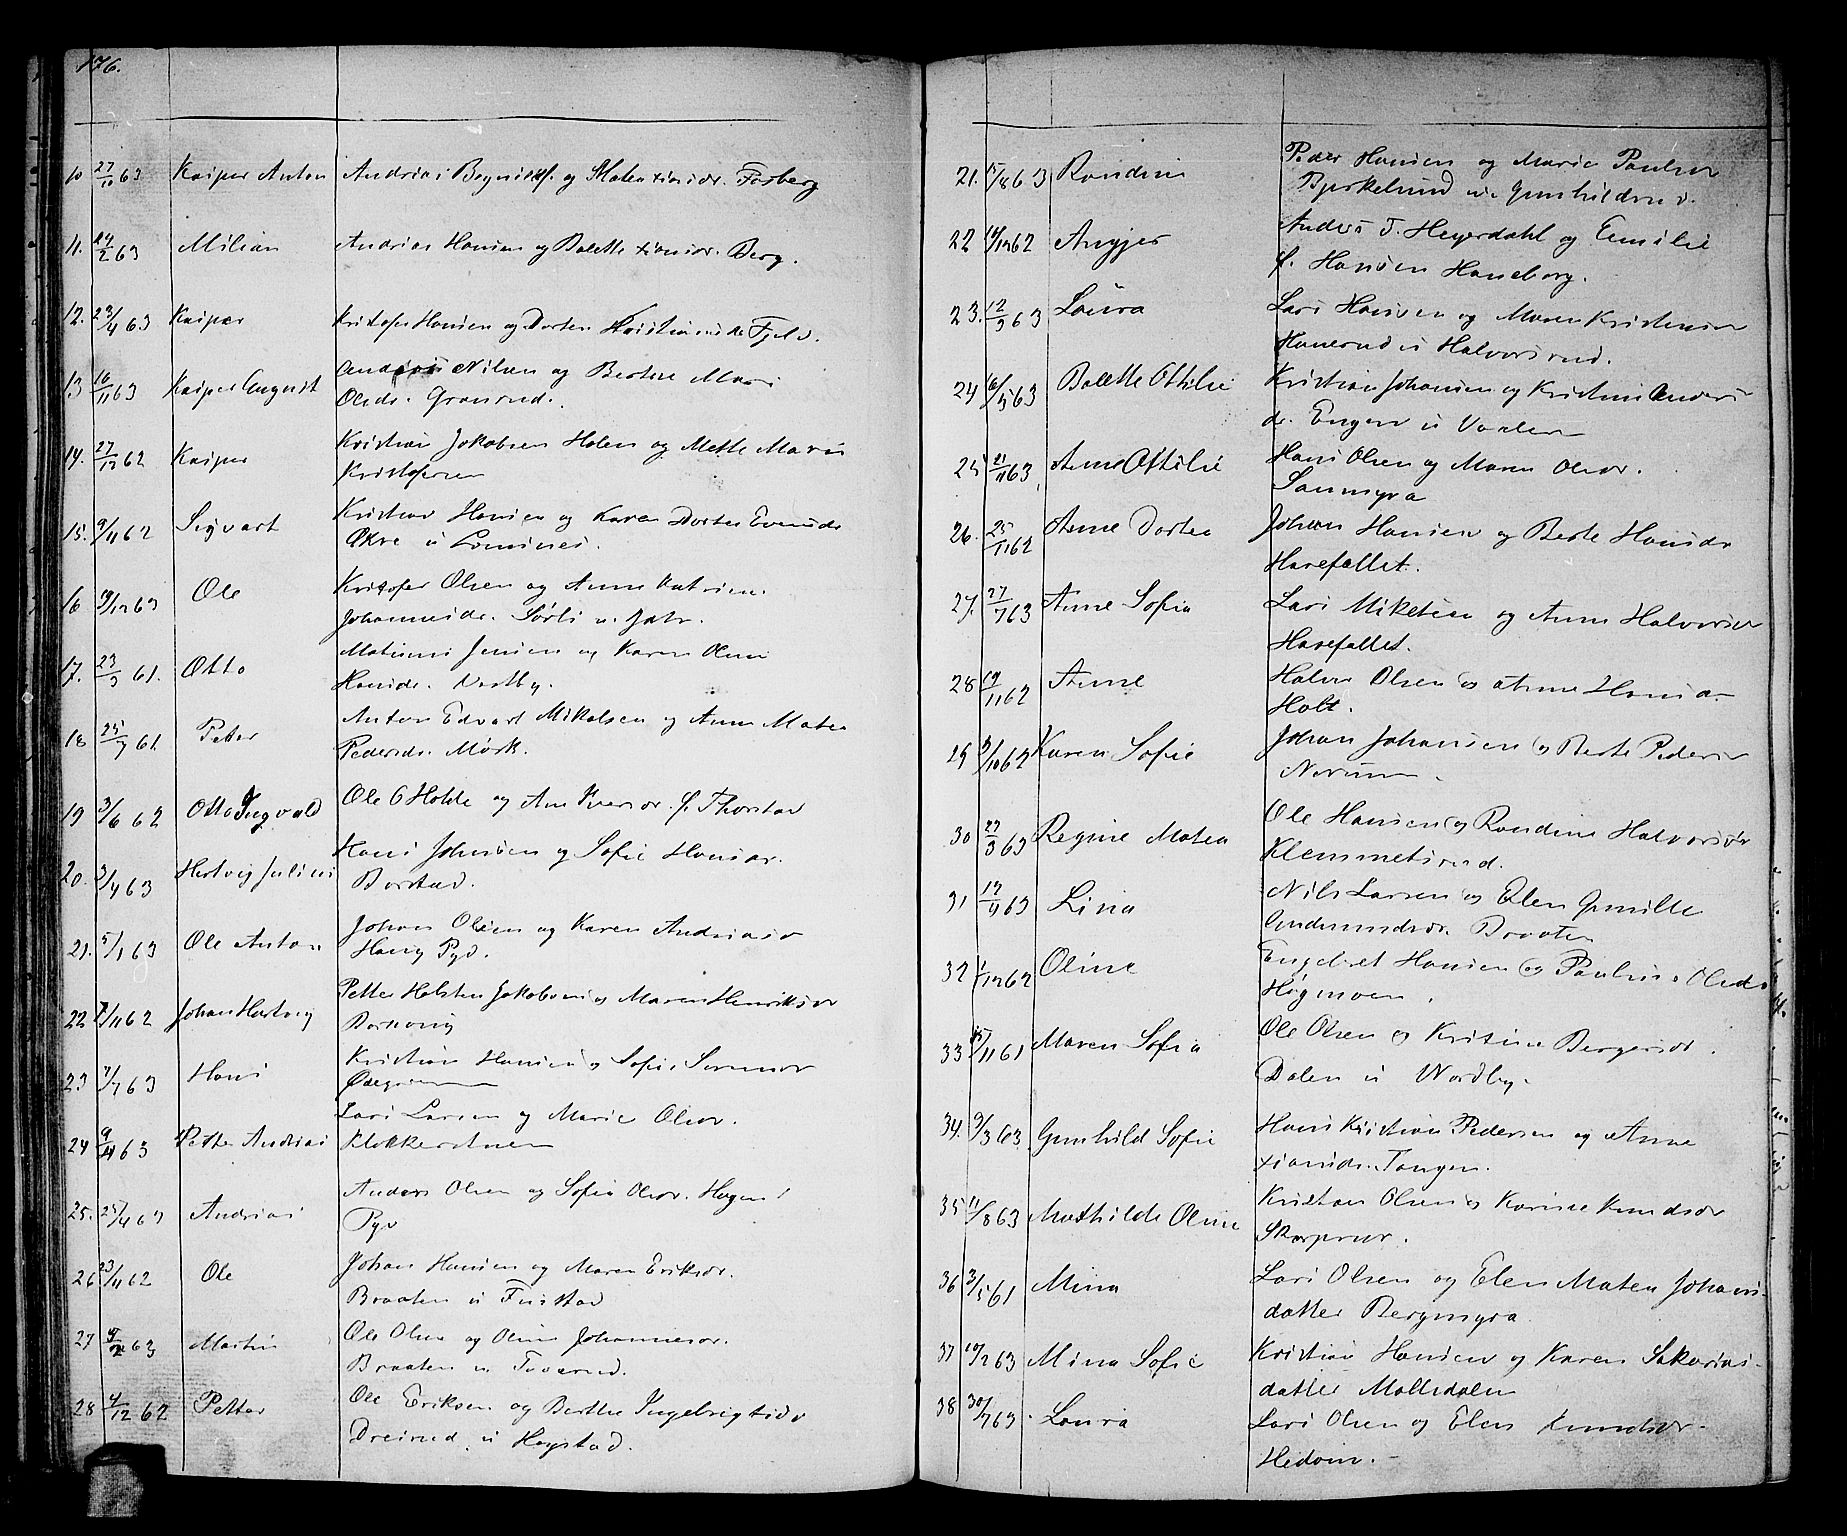 176.
10 27/10 63 Kasper Anton Andrias Bognilds. og Matea xtiansdr. Fosberg
11. 24/2 63 Milian Andrias Hansen og Bolette xtiansdr. Berg.
12. 23/4 63 Kasper Kristofer Hansen og Dorten Kristiansdr. Fjeld.
13 16/11 63 Kasper August Andreas Nilsen og Bertea Mari
Olsdr. Gransrud.
14. 27/12 62 Kasper Kristian Jakobsen Holen og Mette Marie
Kristofersen
15. 9/11 62 Sigvart Kristian Hansen og Karen Dortea Evensdr
Økre u Lominес.
16 19/12 63 Ole Kristofer Olsen og Anne Katrine
Johannesdr. Sørli u.
17. 23/3 61. Otto Matias Jensen og Karen Oline
Hansdr. Nestby.
18 25/7 61. Peter Anton Edvart Mikalsen og Anne Matea
Pedersdr. Mørk.
19 3/6 62 Otto Ingvald Ole O Holde og Ane Iversdr. f. Thorstad
20. 3/4 63 Hertvig Julius Hans Johnsen og Sofie Hansdr.
Borstad.
21. 5/1 63 Ole Anton Johan Olsen og Karen Andriasdr
Haug Pyd.
22 7/11 62 Johan Hartvig Petter Holsten Jakobsen og Maren Henriksdr
23 7/7 63 Hans Kristian Hansen og Sofie
24 9/4 63 Petter Andrias Lars Larsen og Marie Olsdr.
Klokkerstuen
25. 25/4 63 Andrias Anders Olsen og Sofia Olsdr. Hagen i
Pyd
26 23/11 62 Ole Johan Hansen og Maren Eriksdr.
Braaten u Finstad
27 9/2 63 Martin Ole Olsen og Oline Johannesdr.
Braaten u Toverud.
28 4/12 62 Petter Ole Eriksen og Berthe Ingebrigtsdr
Dreirud u Hogstad.
21. 15/8 63 Rondine Peder Hansen og Marie Paulsdr
Bjerkelund u. Gunhildsrud.
22 14/12 62 Angjer Anders T. Heyerdahl og Emilie
f. Hansen Haneborg.
23. 12/3 63 Laura Lars Hansen og Maren Kristensdr
Hanerud u Halvorsrud.
24 6/5 63 Bolette Ottilie Kristian Johansen og Kristine Anders
dr. Engen u Vaalen
25 21/11 63 Anne Ottilie Hans Olsen og Maren Olsdr.
Sanmyra
26. 25/11 62 Anne Dortea Johan Hansen og Berte Hansdr
Harefallet.
27. 27/7 63 Anne Sofia Lars Mikelsen og Anne Halvorsdr
Harefallet.
28 19/11 62 Anne Halvor Olsen og Anne Hansdr
Holt.
29 9/10 62 Karen Sofie Johan Johansen og Berte Pedersdr
Norum.
30 29/3 63 Regine Matea Ole Hansen og Rondine Halvorsdr
Klemmetsrud.
31 19/9 63 Lina Nils Larsen og Elen Gunilde
Gudmundsdr. Braaten
32 1/12 62 Oline Engebret Hansen og Pauline Olsdr
Høgmoen.
33 15/11 61 Maren Sofia Ole Olsen og Kristine Bergersdr.
Dalen u Nordby.
34. 9/3 63 Gunhild Sofie Hans Kristian Pedersen og Anne
xiansdr. Tangen.
35 11/8 63 Mathilde Oline Kristian Olsen og Karine Knudsdr
Skarprur.
36 3/5 61 Mina Lars Olsen og Elen Matea Johans-
datter Bergmyra.
37 19/2 63 Mina Sofie Kristian Hansen og Karen Sakarias-
datter Mølledalen
38 30/7 63 Laura Lars Olsen og Elen Knudsdr.
Hedom.